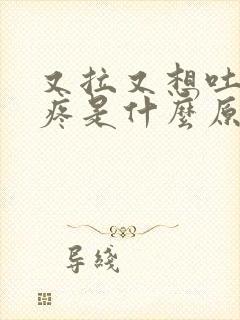 又拉又想吐
疼是什麼原
导綫